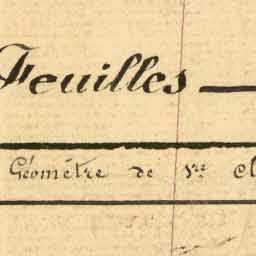 Feuilles —
Géomètre de 1re cl